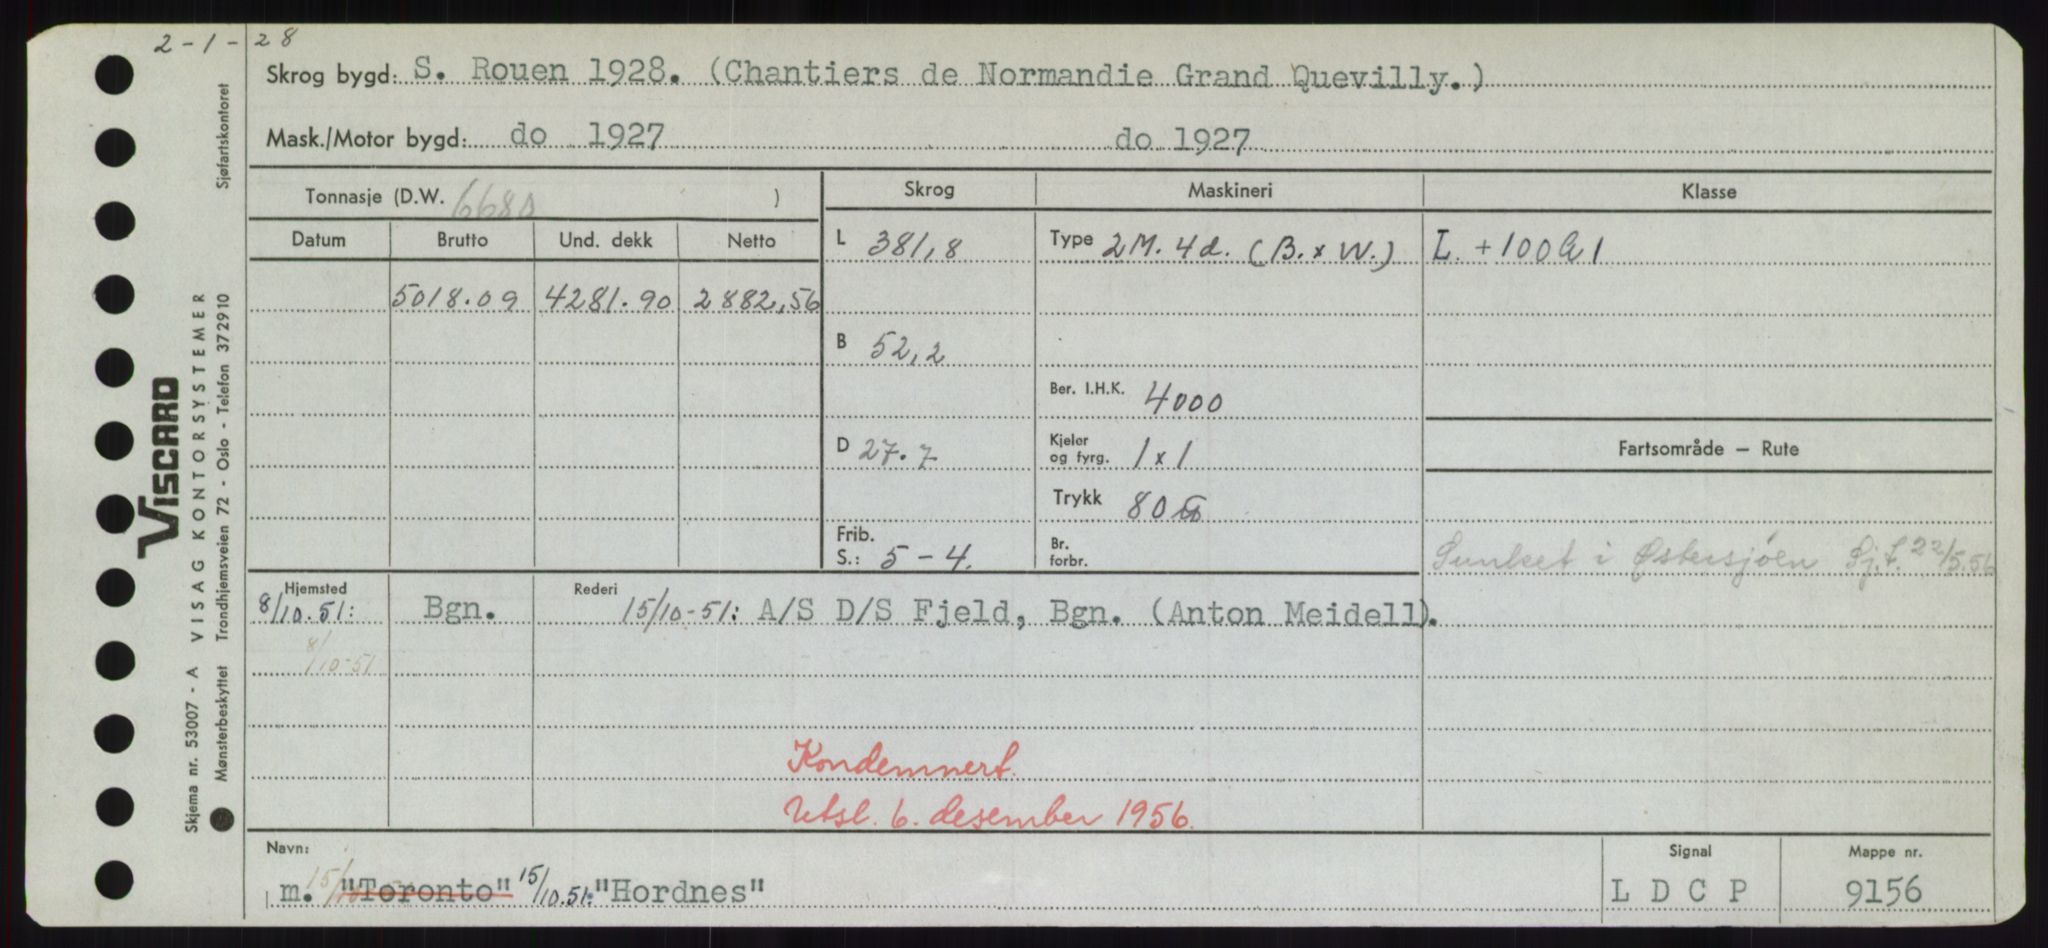 2-1-28
Skrog bygd: S. Rouen 1928. (Chantiers de Normandie Grand Quevilly.)
Mask./Motor bygd: do 1927 do 1927
Tonnasje (D.W. 6680 ) Skrog Maskineri Klasse
Datum Brutto Und. dekk Netto L 381,8 Type 2M. 4d. (B. x W.) L. +100A1
5018.09 4281.90 2882,56
B 52,2
Ber. I.H.K. 4000
D 27.7 Kjeler og fyrg. 1x1 Fartsområde – Rute
Trykk 80
Frib. S.: 5-4. Br. forbr. Sunket i Østersjøen Sj.f. 22/5.56
Hjemsted Rederi
8/10.51: Bgn. 15/10-51: A/S D/S Fjeld, Bgn. (Anton Meidell).
8/10-51
Kondemnert.
Utsl. 6. desember 1956.
Navn: Signal Mappe nr.
m. "Toronto" 15/10.51: "Hordnes" LDCP 9156
Skjema nr. 53007 - A VISAG KONTORSYSTEMER
VISCARD
Mønsterbeskyttet Trondhjemsveien 72 - Oslo - Telefon 372910 Sjøfartskontoret